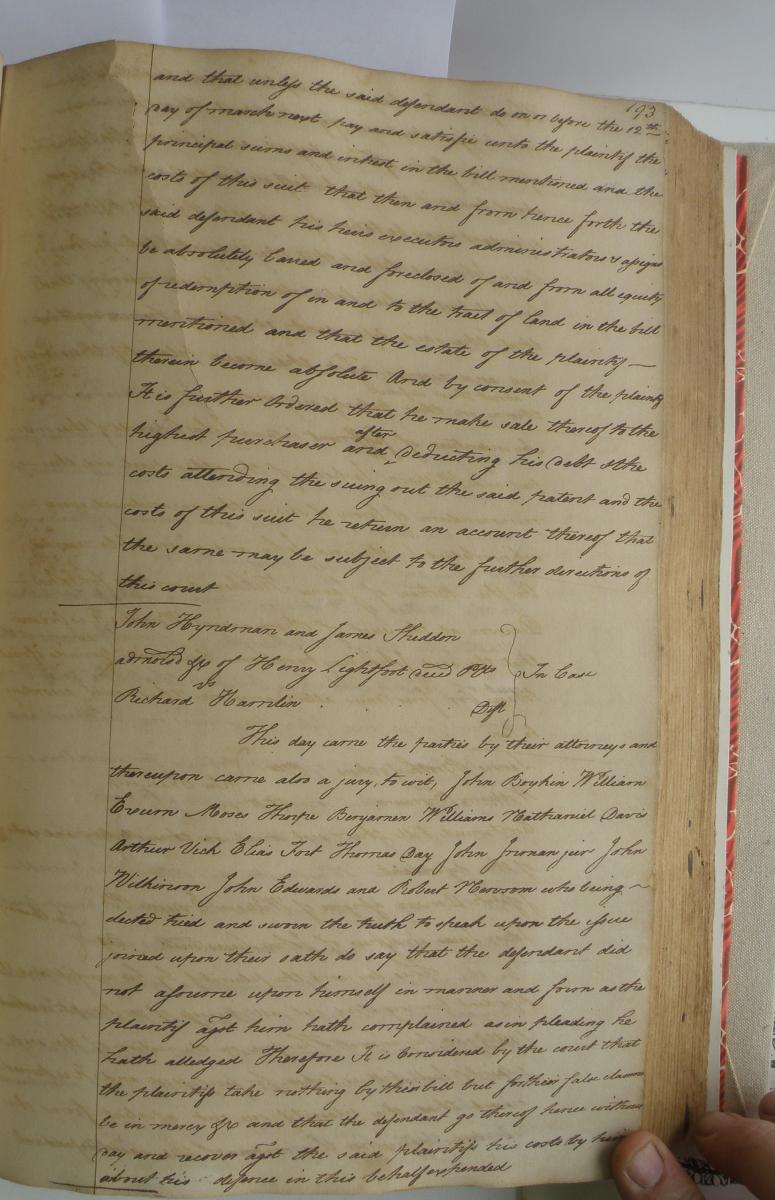 193
and that unless the said defendant do on or before the 12th
day of march next pay and satisfie unto the plaintif the
principal sums and intrest in the bill mentioned and the
costs of this suit that then and from hence forth the
said defendant his heirs executors administrators & assigns
be absolutely barred and foreclosed of and from all equity
of redemption of in and to the tract of land in the bill
mentioned and that the estate of the plaintif —
therein become absolute And by consent of the plaintif
It is further Ordered that he make sale thereof to the
highest purchaser and after deducting his debt & the
costs attending the suing out the said patent and the
costs of this suit he return an account thereof that
the same may be subject to the further directions of
this court
John Hyndman and James Sheddon
admors &c of Henry Lightfoot decd Plts
vs
In Case
Richard Hamlin Deft
This day came the parties by their attorneys and
thereupon came also a jury, to wit, John Boykin William
Exum Moses Thorpe Benjamen Williams Nathaniel Davis
Arthur Vick Elias Fort Thomas Day John Inman junr John
Wilkinson John Edwards and Robert Newsom who being —
elected tried and sworn the truth to speak upon the issue
joined upon their oath do say that the defendant did
not assume upon himself in manner and form as the
plaintif agst him hath complained as in pleading he
hath alledged Therefore It is Considered by the court that
the plaintifs take nothing by their bill but for their false clamour
be in mercy &c and that the defendant go thereof hence without
day and recover agst the said plaintifs his costs by him
about his defence in this behalf expended